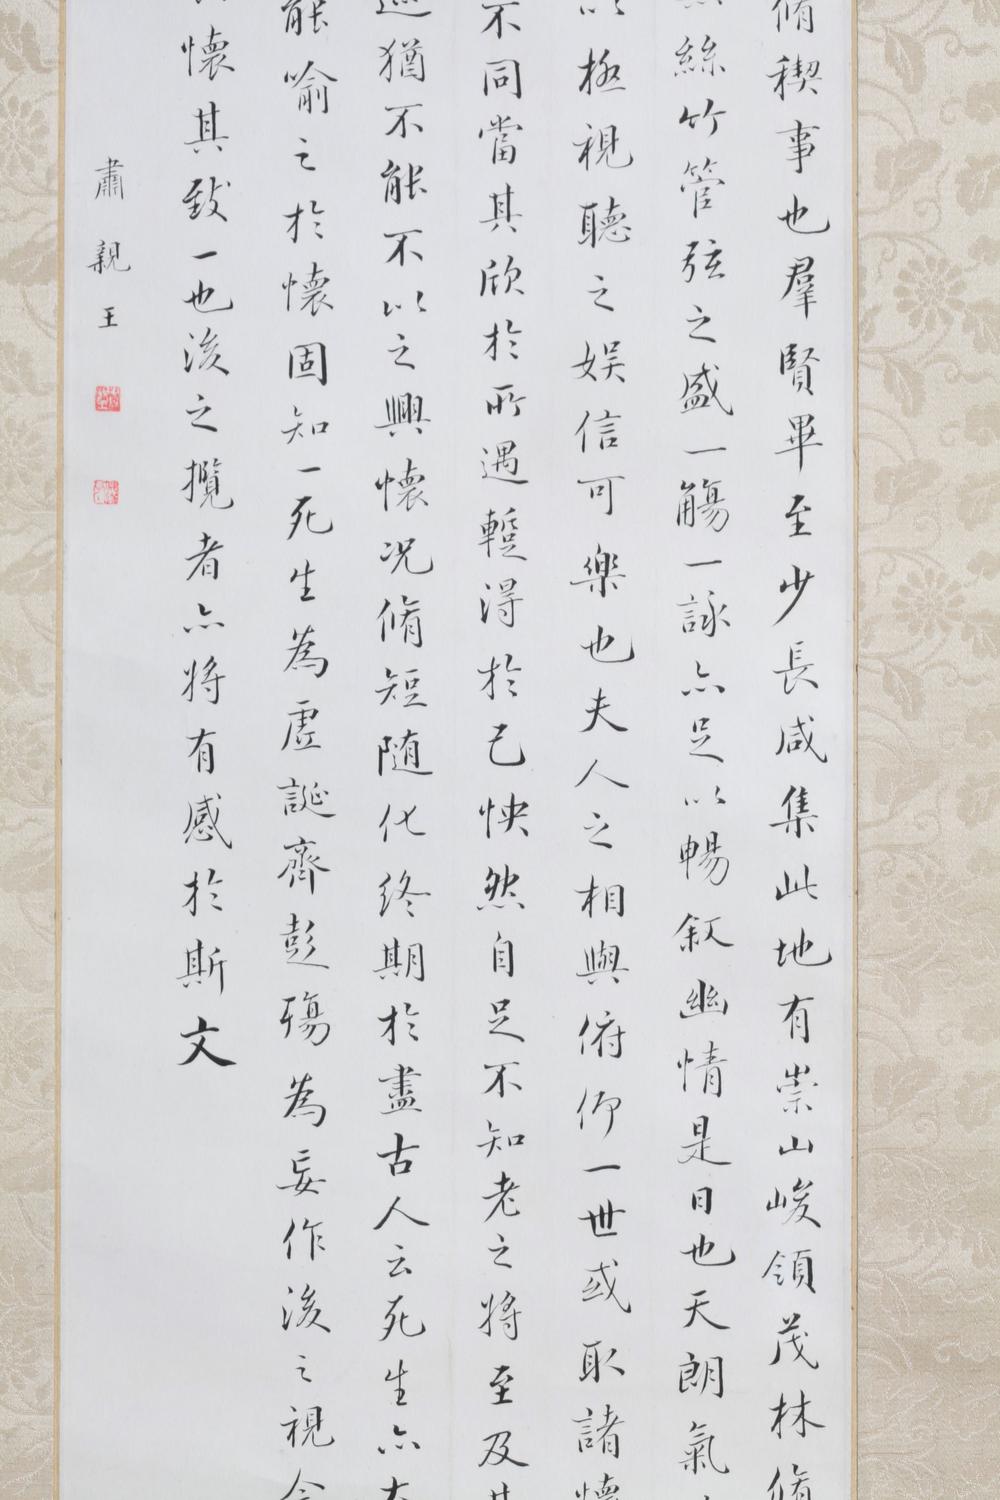 脩稧事也羣賢畢至少長咸集此地有崇山峻領茂林脩
絲竹管弦之盛一觴一詠亦足以暢叙幽情是日也天朗氣
以極視聽之娛信可樂也夫人之相與俯仰一世或取諸懷
不同當其欣於所遇蹔得於己怏然自足不知老之將至及其
猶不能不以之興懷况脩短隨化終期於盡古人云死生亦大
能喻之於懷固知一死生為虛誕齊彭殤為妄作後之視今
懷其致一也後之攬者亦將有感於斯文
肅親王